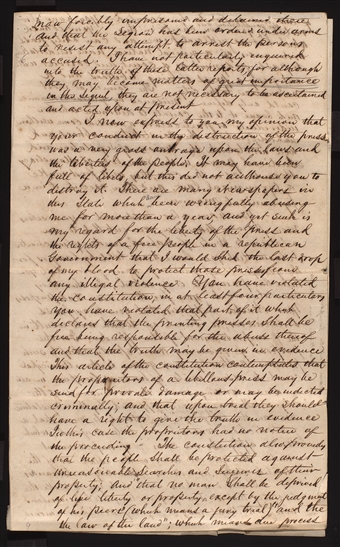 now forcibly imprisoned and detained there
and that the Legion has been ordered under arms
to resist any attempt to arrest the persons
accused. I have not particularly enquired
into the truth of these latter reports; for although
they may become matters of great importance
in the sequel, they are not necessary to be ascertained
and acted upon at present
I now express to you my opinion that
your conduct in the destruction of the press
was a very gross outrage upon the laws and
the liberties of the people. It may have been
full of libels, but this did not authorise you to
destroy it. There are many newspapers in
this State which have been wrongfully abusing
me for more than a year, and yet such is
my regard for the liberty of the press and
the rights of a free people in a republican
Government that I would shed the last drop
of my blood to protect those presses from
any illegal violence. You have violated
the constitution in at least four particulars
You have violated that part of it which
declares that the printing presses shall be
free being responsible for the abuse thereof
and that the truth may be given in evidence
This article of the constitution contemplates that
the proprietors of a libellous press may be
sued for private damage or may be indicted
criminally, and that upon trial they should
have a right to give the truth in evidence
In this case the proprietors had no notice of
the proceeding. The constitution also provides
that the people shall be protected against
unreasonable searches and seizures of their
property; and "that no man shall be deprived
of life liberty or property, except by the judgment
of his peers (which means a jury trial) and the
the law of the land"; which means due process